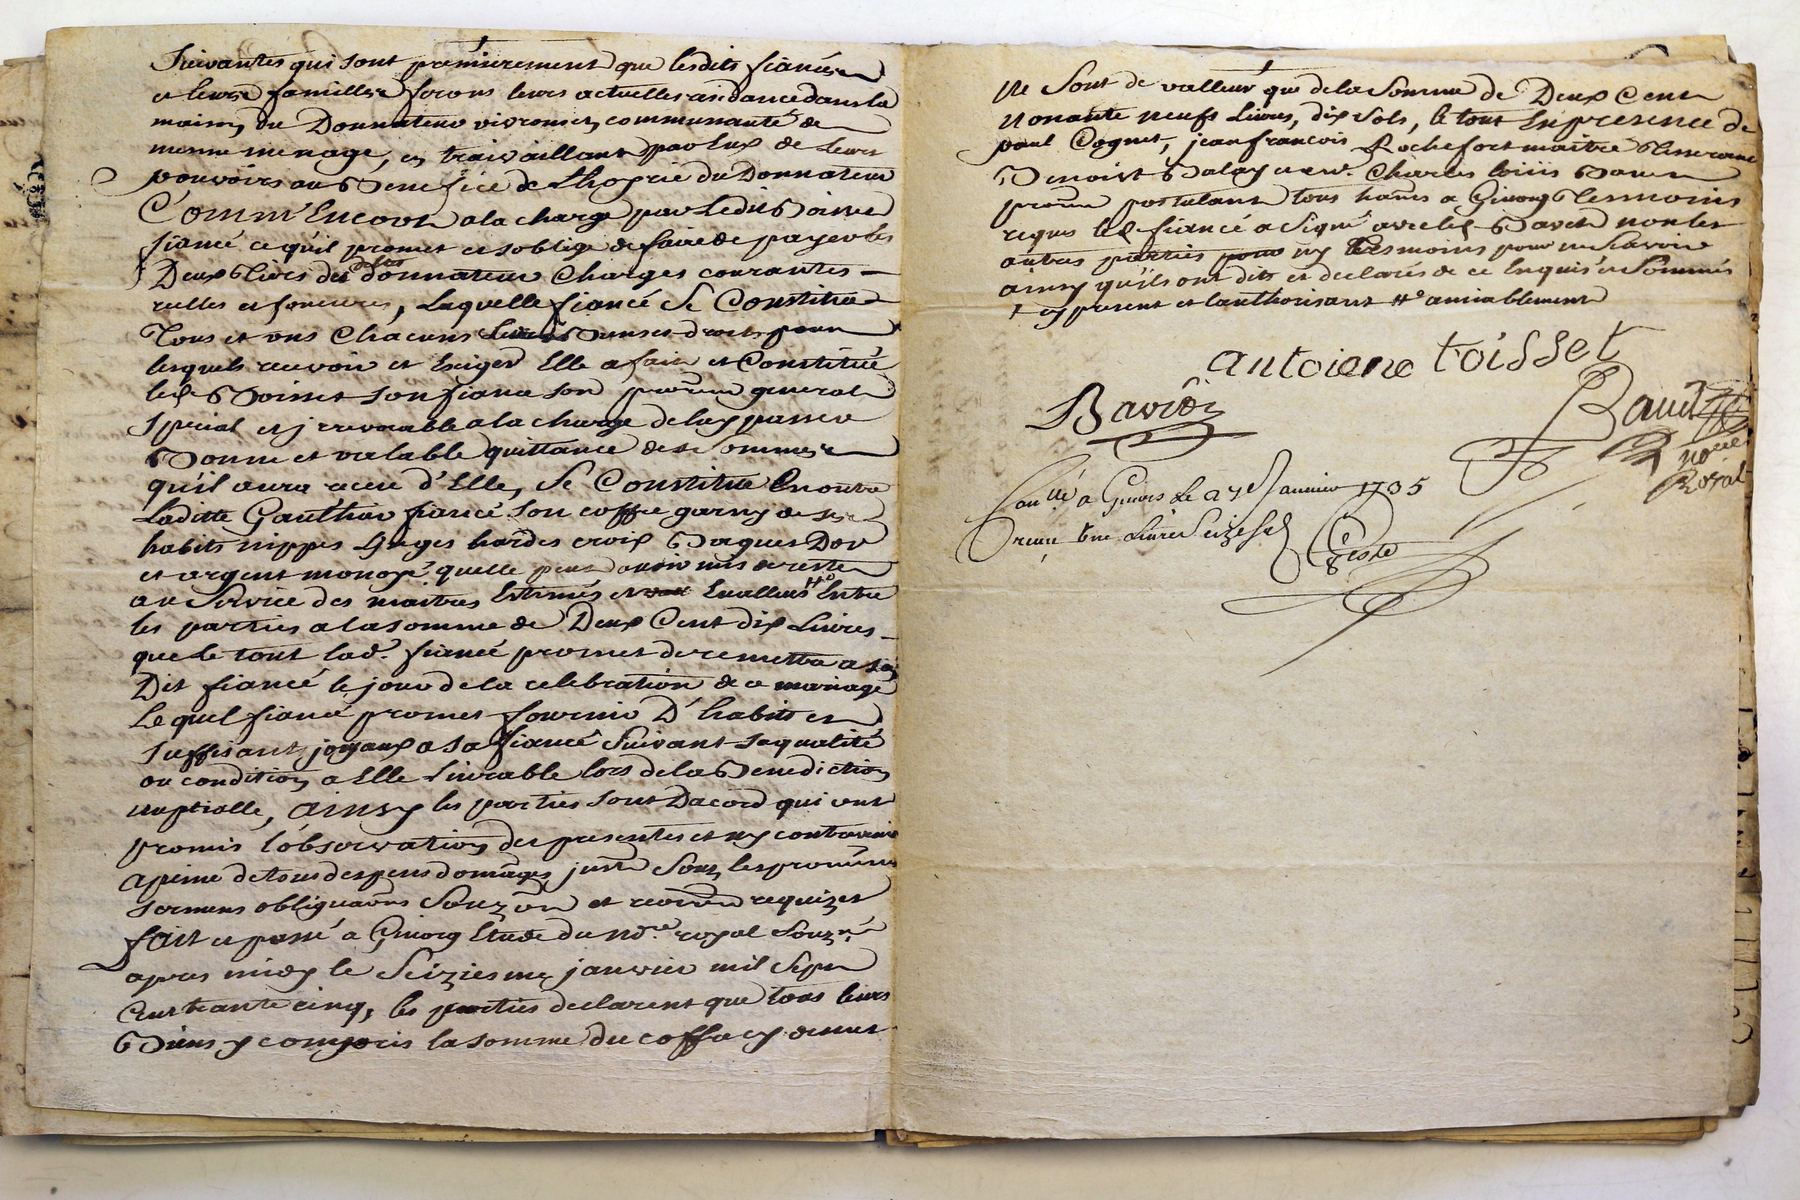 Suivantes qui sont premierement que lesdits fiancés
et leurs familles feront leurs actuelles residance dans la
maison du Donnateur vivront en communauté de
mesme menage, en traivaillant par Eux de Leurs
pouvoirs au Benefice de Lhoirie du Donnateur
Comm'Encour a la charge par Ledit Boisset
fiancé ce qu'il promet et soblige de faire de payer les
Deux tiers des dettes donnateur Charges courantes
réelles et foncieres, Laquelle fiancé Se Constitue
Tous et uns Chacuns Biens et droits pour
lesquels recevoir et Exiger Elle a fait et Constitué
led Boisset son fiance son procureur general
special et jrrevocable a la charge de luy passer
Bonne et valable quittance des Sommes
qu'il aura receu d'Elle, Se Constitue Enoutre
Laditte Gauthier fiancé son coffre garny de ses
habits nippes Linges hardes croix Bagues Dor
et argent monoyé quelle peut avoir mis de reste
au Service des maitres Estimés et Evalleues #° Entre
les parties a la somme de Deux Cent dix Livres
que le tout lad.e fiancé promet de remettre a son
Dit fiancé le jour de la celebration de ce mariage
Le quel fiancé promet fournir D'habits et
suffisants joyaux a sa fiancé Suivant sa qualité
ou condition a Elle Livrable lors de la Benediction
nuptialle, ainsy les parties sont Dacord qui ont
promis l'observation des presentes et ny contrevenir
a peine de tous despens domages, sous les
sermens obligations et requizes
fait et passé a Givors Etude du no.re royal Souz.né
apres midy le Seiziesme janvier mil Sept
Cent trante cinq, les parties declarent que tous leurs
Biens y compris la somme du coffre cy dessus
Ne Sont de valleur que de la Somme de Deux Cent
Nonante neufs Livres, dix sols, le tout En presence de
paul Cognet, jean francois Rochefort maitre
Benoist Charles
postulant tous ham.s a Givors Tesmoins
requis led fiancé a Signé avec led non les
autres parties ny Tesmoins pour ne Savoir
ainsy qu'ils ont dits et declarés de ce Enquis et Sommés
+ cy present et lauthorisant #° amiablement
antoiene toisset
Baviot
Baud
no.re
Royal
Con.llé a Givors Le 27 Janvier 1735
Receu Une Livre Seize sols